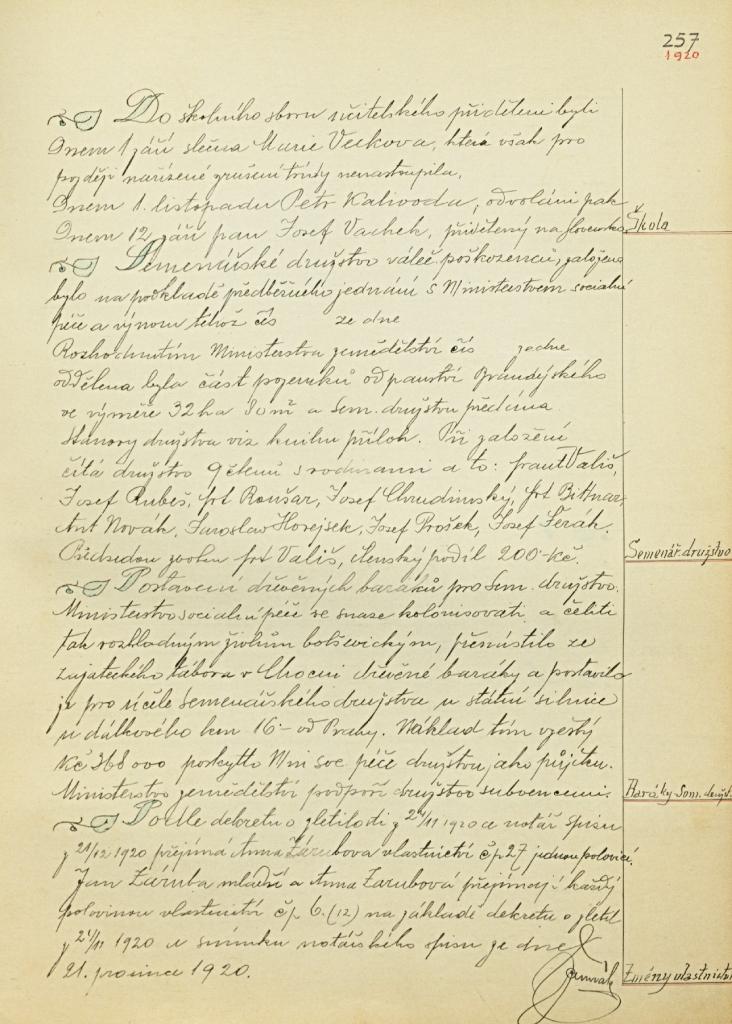 257
1920
Do školního sboru učitelského přiděleni byli
Dnem 1 září slečna Marie Veckova, která však pro
později nařízené zrušení třídy nenastoupila.
Dnem 1. listopadu Petr Kalivoda, odvoláni pak
Dnem 12 září pan Josef Vachek, přidělený na Slovensko
Škola
Semenářské družstvo váleč. poškozenců, založeno
bylo na podkladě předběžného jednání s Ministerstvem sociální
péče a výnosu téhož čís ze dne
Rozhodnutím Ministerstva zemědělství čís ze dne
oddělena byla část pozemků od panství Brandýského
ve výměře 32 ha a Sem. družstvu předána.
Stanovy družstva viz knihu příloh. Při založení
čítá družstvo 9 členů s rodinami a to: Frant Vališ,
Josef Rubeš, Frt Roušar, Josef Chrudimský, Frt Bittnar,
Ant Novák, Jaroslav Horejsek, Josef Prošek, Josef Ferák.
Předsedou zvolen Frt Vališ, členský podíl 200 Kč.
Semenář. družstvo
Postavení dřevěných baráků pro Sem. družstvo.
Ministerstvo sociální péče ve snaze kolonisovati a čeliti
tak rozkladným živlům bolševickým, přemístilo ze
zajateckého tábora v Chocni dřevěné baráky a postavilo
je pro účele semenářského družstva u státní silnice
u dálkového km 16 – od Prahy. Náklad tím vzešlý
Kč 368 000 poskytlo Min soc péče družstvu jako půjčku.
Ministerstvo zemědělství podpoří družstvo subvencemi.
Baráky Sem. družst.
Podle dekretu o zletilosti z 24/11 1920 a notář spisu
z 21/12 1920 přejímá Anna Zárubova vlastnictví čp 27 jednou polovicí.
Jan Záruba mladší a Anna Zarubová přejímají každý
polovinou vlastnictví čp. 6. (12) na základě dekretu o zletil
z 24/11 1920 a snímku notářského spisu ze dne
21. prosince 1920.
Změny vlastnictví